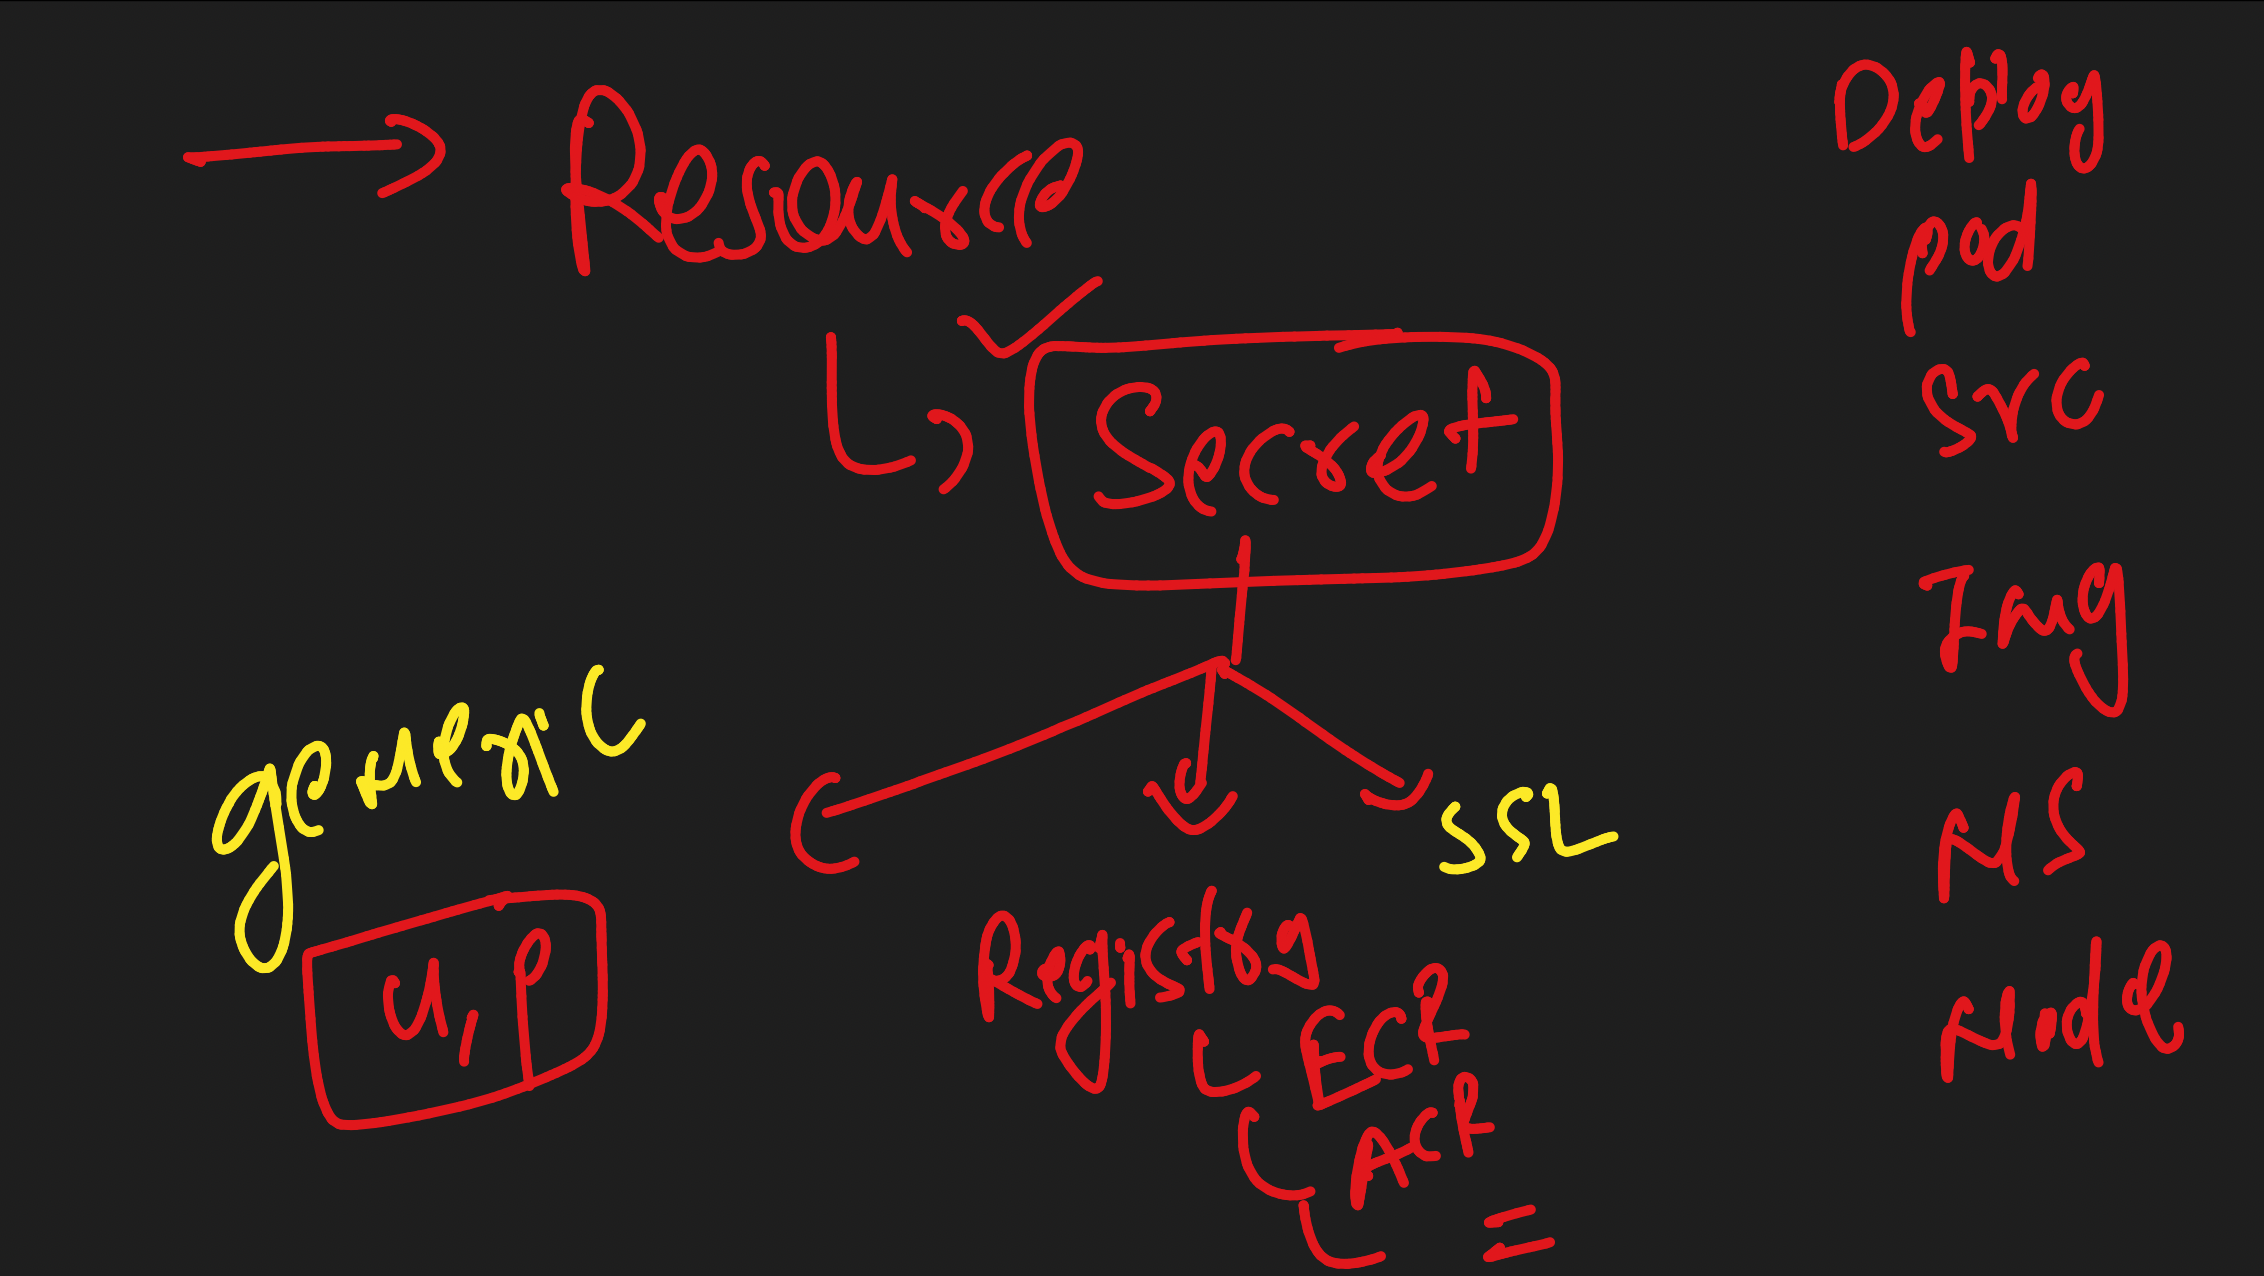 Resource
Secret
generic
u, p
Registry
ECR
ACR
=
SSL
Deploy
pod
svc
Img
NS
Node